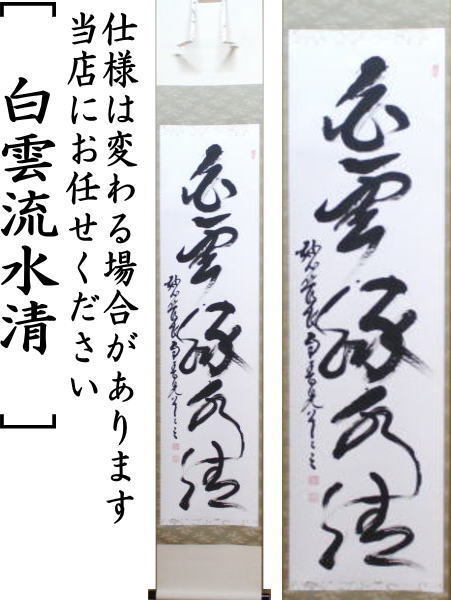 仕様は変わる場合があります
当店にお任せください
[白雲流水清]
白雲流水清
白雲流水清